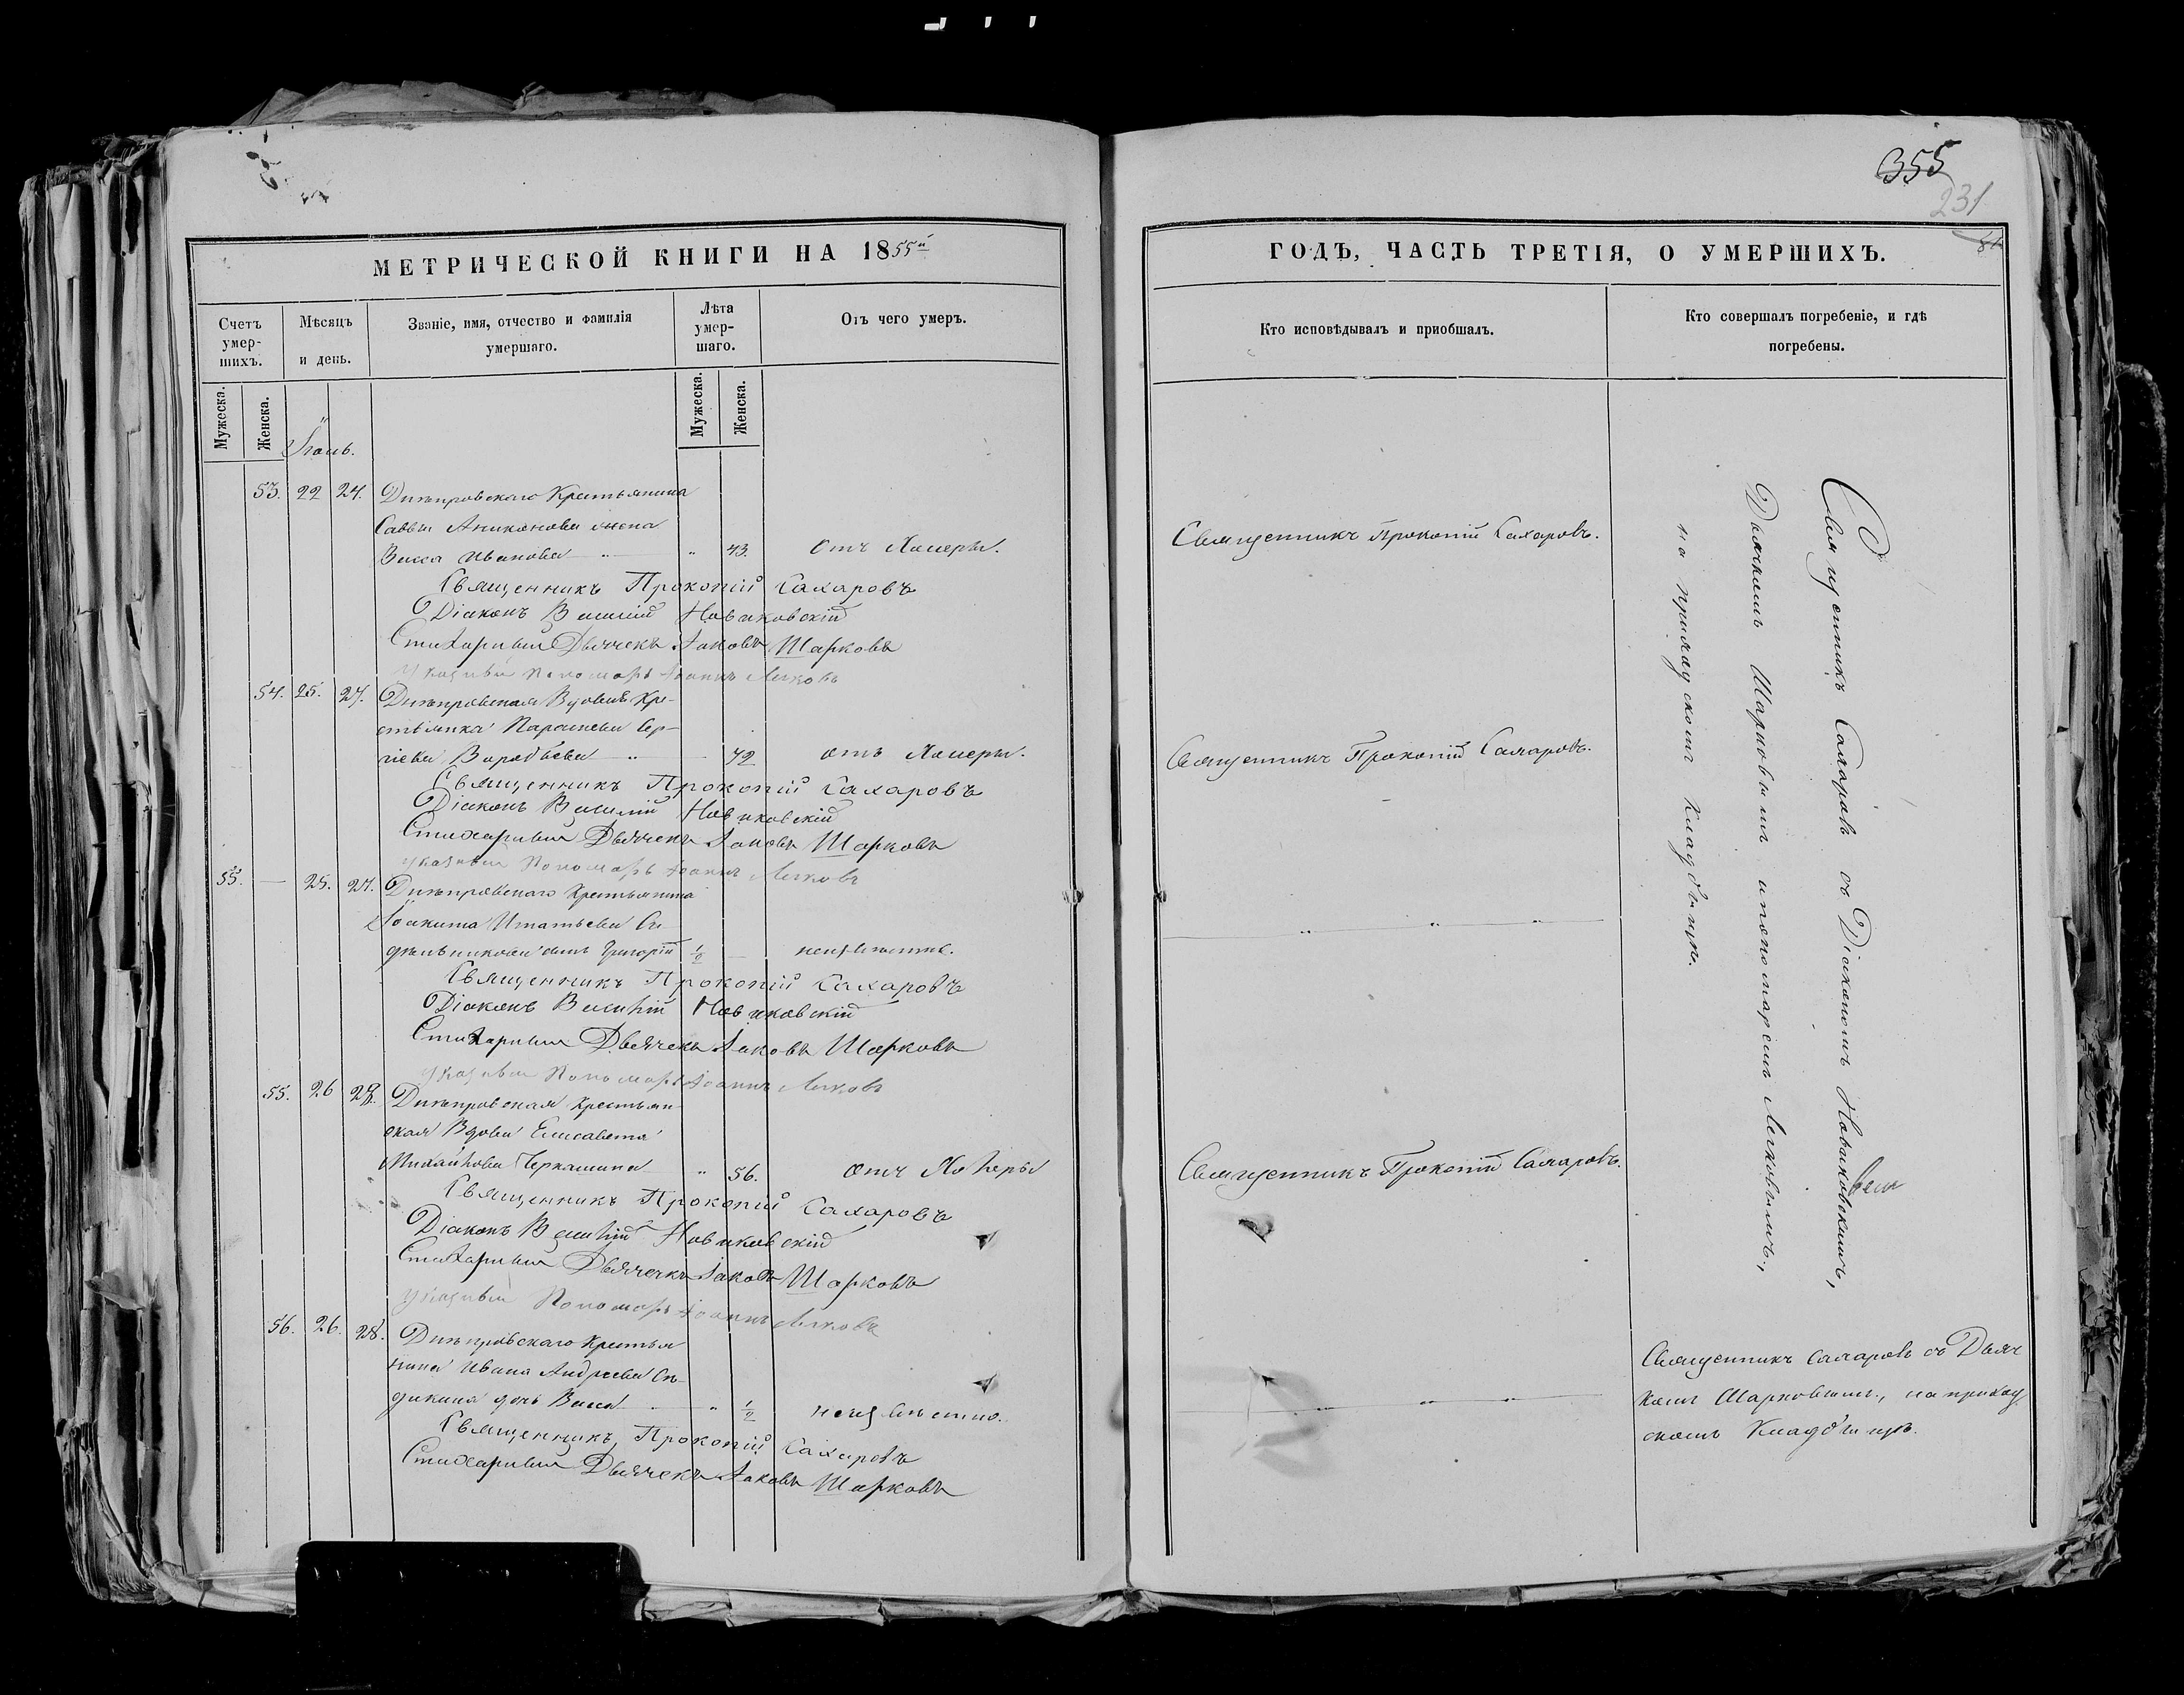 355
231
МЕТРИЧЕСКОЙ КНИГИ НА 1855й
Счетъ умер-шихъ.
Мѣсяцъ и день.
Званіе, имя, отчество и фамилія умершаго.
Лѣта умер-шаго.
Отъ чего умеръ.
Мужеска.
Женска.
Мужеска.
Женска.
53. 22 24. Днѣпровскаго Крестьянина
Саввы Аниканова жена
Васса Иванова " 43. Отъ Холеры.
Священникъ Прокопій Сахаровъ
Діаконъ Василій Новиковскій
Стихарный Дьячекъ Іаковъ Шарковъ
Указный Пономарь Іоаннъ Легковъ
54. 25. 27. Днѣпровская Вдова Кре-
стьянка Параскева Сер-
гіева Воробьева " 72 отъ Холеры.
Священникъ Прокопій Сахаровъ
Діаконъ Василій Новиковскій
Стихарный Дьячекъ Іаковъ Шарковъ
Указный Пономарь Іоаннъ Легковъ
55. — 25. 27. Днѣпровскаго Крестьянина
Іоакима Игнатьева
сынъ Григорій 1/2 — неизвѣстно.
Священникъ Прокопій Сахаровъ
Діаконъ Василій Новиковскій
Стихарный Дьячекъ Іаковъ Шарковъ
Указный Пономарь Іоаннъ Легковъ
55. 26 28. Днѣпровская Крестьян-
ская Вдова Елисавета
Михайлова Черкашина " 56. отъ Холеры
Священникъ Прокопій Сахаровъ
Діаконъ Василій Новиковскій
Стихарный Дьячекъ Іаковъ Шарковъ
Указный Пономарь Іоаннъ Легковъ
56. 26. 28. Днѣпровскаго Крестья
нина Ивана Андреева
дочь Васса " 1/2 неизвѣстно.
Священникъ Прокопій Сахаровъ
Стихарный Дьячекъ Іаковъ Шарковъ
ГОДЪ, ЧАСТЬ ТРЕТІЯ, О УМЕРШИХЪ.
Кто исповѣдывалъ и пріобщалъ.
Кто совершалъ погребеніе, и гдѣ погребены.
Священникъ Прокопій Сахаровъ.
Священникъ Прокопій Сахаровъ.
Священникъ Прокопій Сахаровъ.
Священникъ Сахаровъ съ Діакономъ Новиковскимъ,
Дьячкомъ Шарковымъ и пономаремъ Легковымъ,
на приходскомъ Кладбищѣ.
Священникъ Сахаровъ съ Дьяч
комъ Шарковымъ, на приход
скомъ Кладбищѣ.